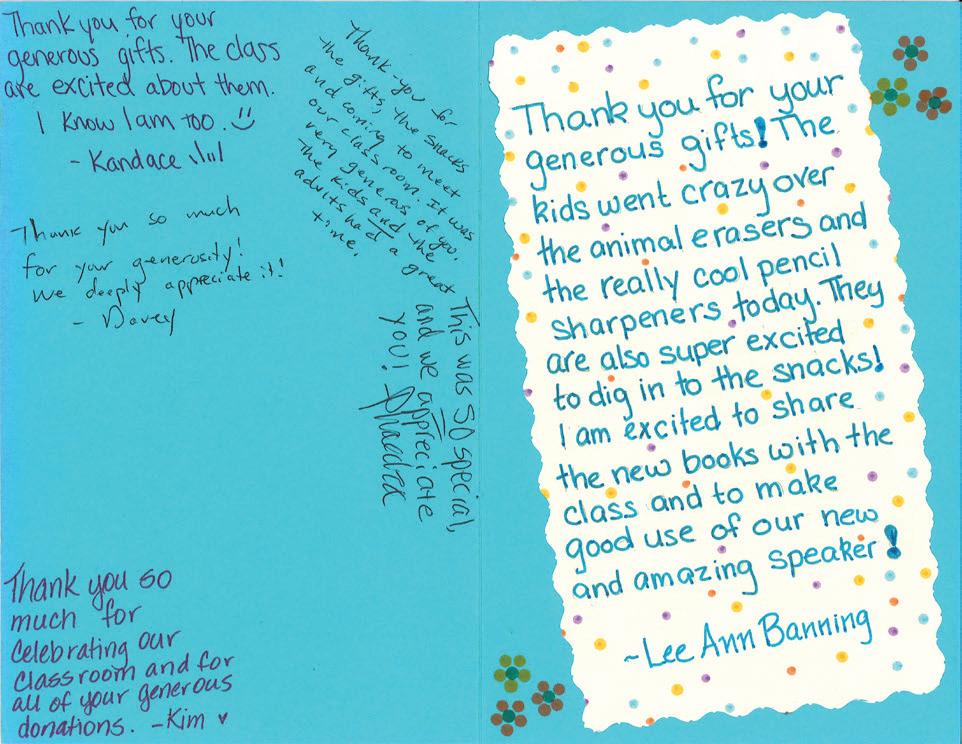 Thank you for your
generous gifts. The class
are excited about them.
I know I am too.
- Kandace
Thank you so much
for your generosity!
We deeply appreciate it!
- Davey
Thank you for
the gifts, the snacks
and coming to meet
our class room. It was
very generos of you.
The kids and the
adults had a great
time.
This was SO special,
and we appreciate
you! Phaedra
Thank you so
much for
celebrating our
classroom and for
all of your generous
donations. -Kim ♥
Thank you for your
generous gifts! The
kids went crazy over
the animal erasers and
the really cool pencil
sharpeners today. They
are also super excited
to dig in to the snacks!
I am excited to share
the new books with the
class and to make
good use of our new
and amazing speaker!
~Lee Ann Banning